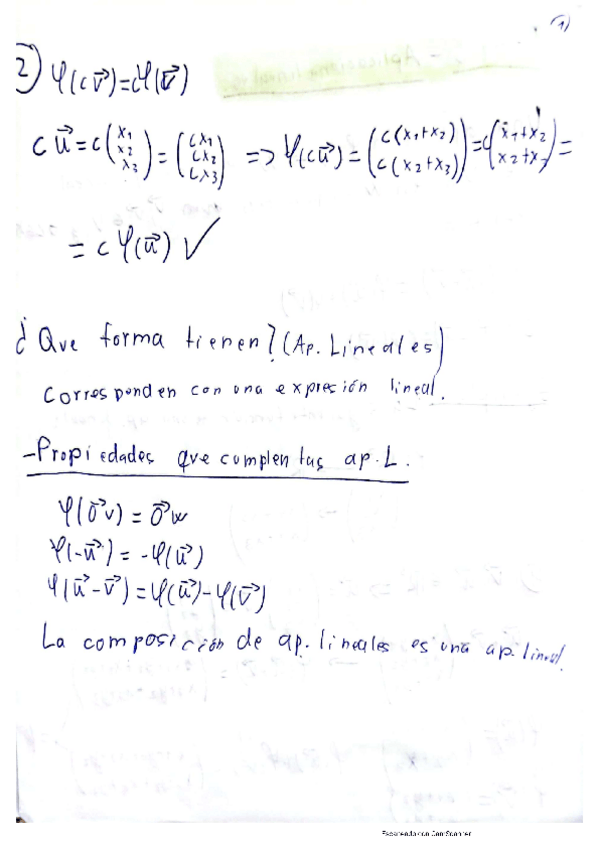 1)
2) φ(c v⃗) = cφ(v⃗)
c u⃗ = c (x₁ x₂ x₃) = (cx₁ cx₂ cx₃) => φ(cu⃗) = (c(x₁+x₂) c(x₂+x₃)) = c(x₁+x₂ x₂+x₃) =
= c φ(u⃗) ✓
¿Que forma tienen? (Ap. Lineales)
Corresponden con una expresión lineal.
-Propiedades que cumplen las ap. L.
φ(0⃗v) = 0⃗w
φ(-u⃗) = -φ(u⃗)
φ(u⃗-v⃗) = φ(u⃗)-φ(v⃗)
La composición de ap. lineales es una ap. lineal.
Escaneado con CamScanner